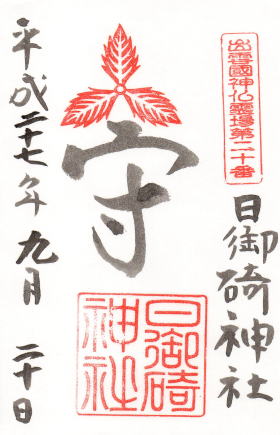 出雲國神仏霊場第二十番
日御碕神社
守
日御碕
神社
平成二十七年九月二十日